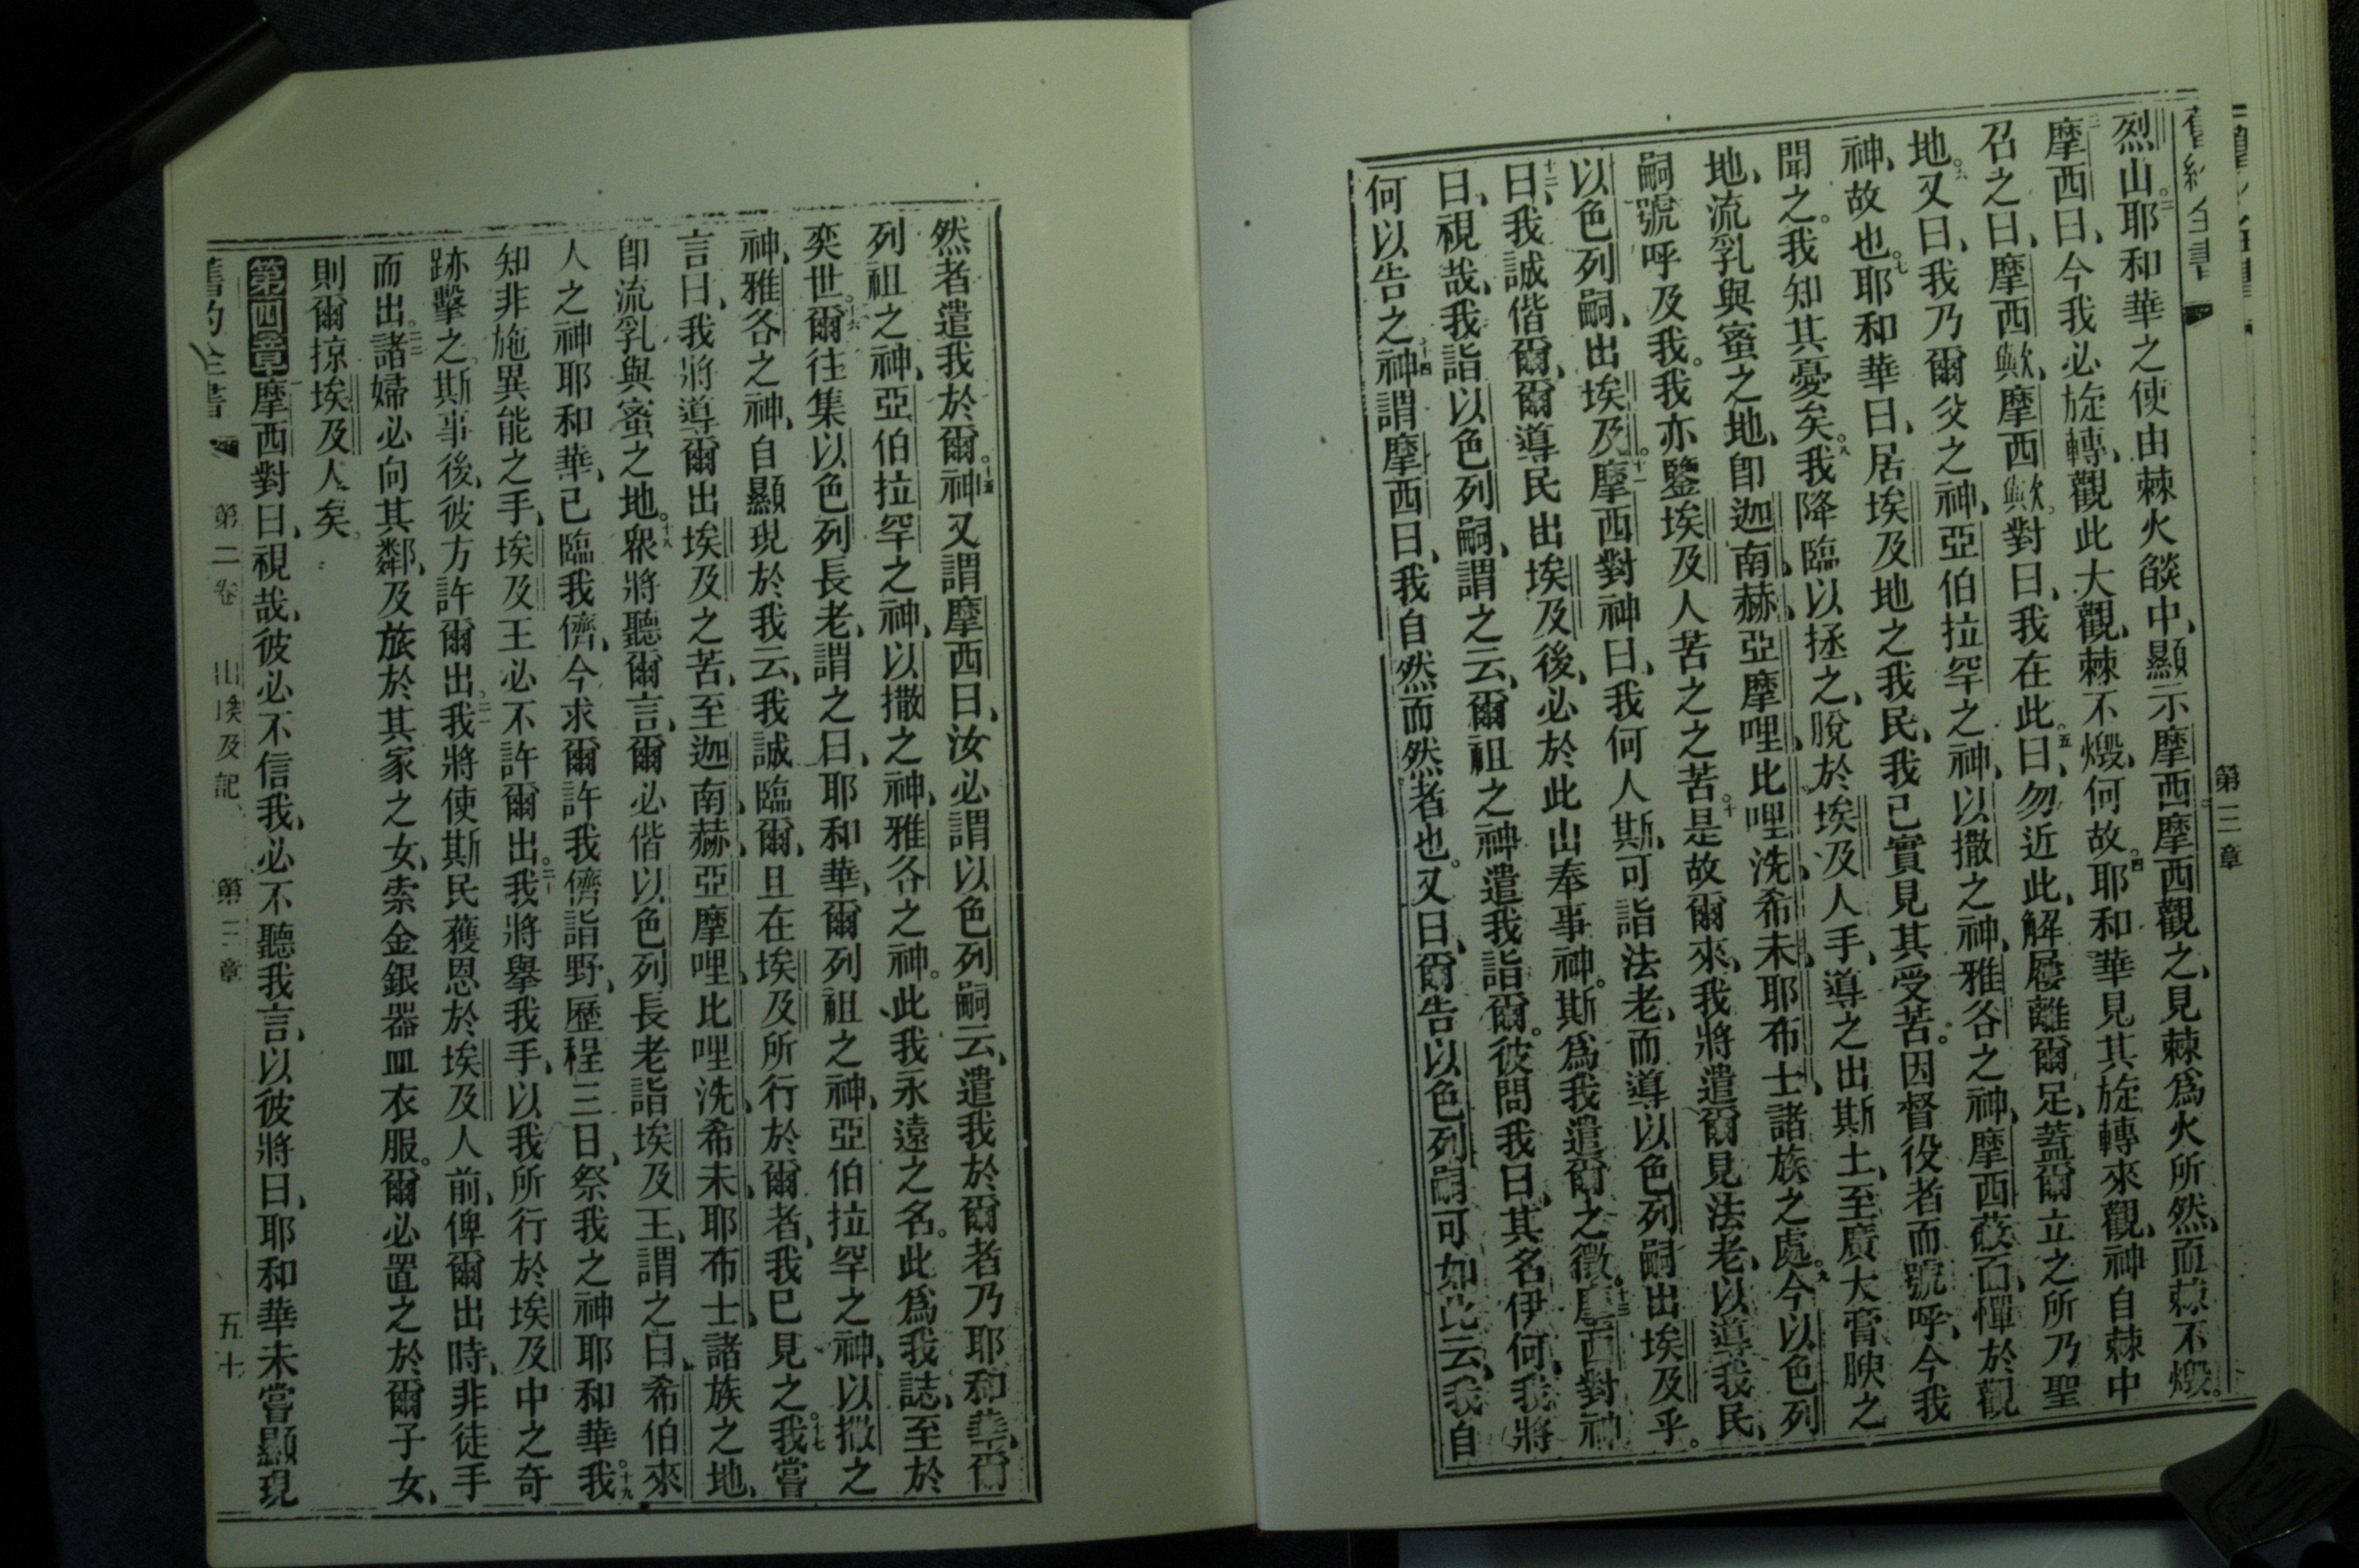 舊約全書 第三章
烈山。二耶和華之使由棘火燄中、顯示摩西、摩西觀之、見棘爲火所然、而棘不燬。
三摩西曰、今我必旋轉、觀此大觀、棘不燬、何故。四耶和華見其旋轉來觀、神自棘中
召之曰、摩西歟、摩西歟。對曰、我在此。五曰、勿近此、解屨離爾足、蓋爾立之所乃聖
地。六又曰、我乃爾父之神、亞伯拉罕之神、以撒之神、雅各之神、摩西蔽面、憚於觀
神、故也。七耶和華曰、居埃及地之我民、我已實見其受苦。因督役者而號呼、今我
聞之。我知其憂矣。八我降臨以拯之、脫於埃及人手、導之出斯土、至廣大膏腴之
地、流乳與蜜之地、卽迦南、赫、亞摩哩、比哩洗、希未、耶布士、諸族之處。九今以色列
嗣號呼及我。我亦鑒埃及人苦之之苦。十是故爾來、我將遣爾見法老、以導我民、
以色列嗣、出埃及。十一摩西對神曰、我何人斯、可詣法老、而導以色列嗣出埃及乎。
十二曰、我誠偕爾、爾導民出埃及後、必於此山奉事神。斯爲我遣爾之徵。十三摩西對神
曰、視哉、我詣以色列嗣、謂之云、爾祖之神遣我詣爾。彼問我曰、其名伊何、我將
何以告之。十四神謂摩西曰、我自然而然者也。又曰、爾告以色列嗣可如此云、我自
然者遣我於爾。十五神又謂摩西曰、汝必謂以色列嗣云、遣我於爾者乃耶和華、爾
列祖之神、亞伯拉罕之神、以撒之神、雅各之神。此我永遠之名。此爲我誌、至於
奕世。十六爾往集以色列長老、謂之曰、耶和華、爾列祖之神、亞伯拉罕之神、以撒之
神、雅各之神、自顯現於我云、我誠臨爾、且在埃及所行於爾者、我已見之。十七我嘗
言曰、我將導爾出埃及之苦、至迦南、赫、亞摩哩、比哩洗、希未、耶布士、諸族之地、
卽流乳與蜜之地。十八衆將聽爾言、爾必偕以色列長老詣埃及王、謂之曰、希伯來
人之神耶和華、已臨我儕、今求爾許我儕詣野、歷程三日、祭我之神耶和華。十九我
知非施異能之手、埃及王必不許爾出。二十我將舉我手、以我所行於埃及中之奇
跡擊之。斯事後、彼方許爾出。二一我將使斯民獲恩於埃及人前、俾爾出時、非徒手
而出。二二諸婦必向其鄰、及旅於其家之女、索金銀器皿衣服。爾必置之於爾子女、
則爾掠埃及人矣。
第四章 一摩西對曰、視哉、彼必不信我、必不聽我言、以彼將曰、耶和華未嘗顯現
舊約全書 第二卷 出埃及記 第三章 五十